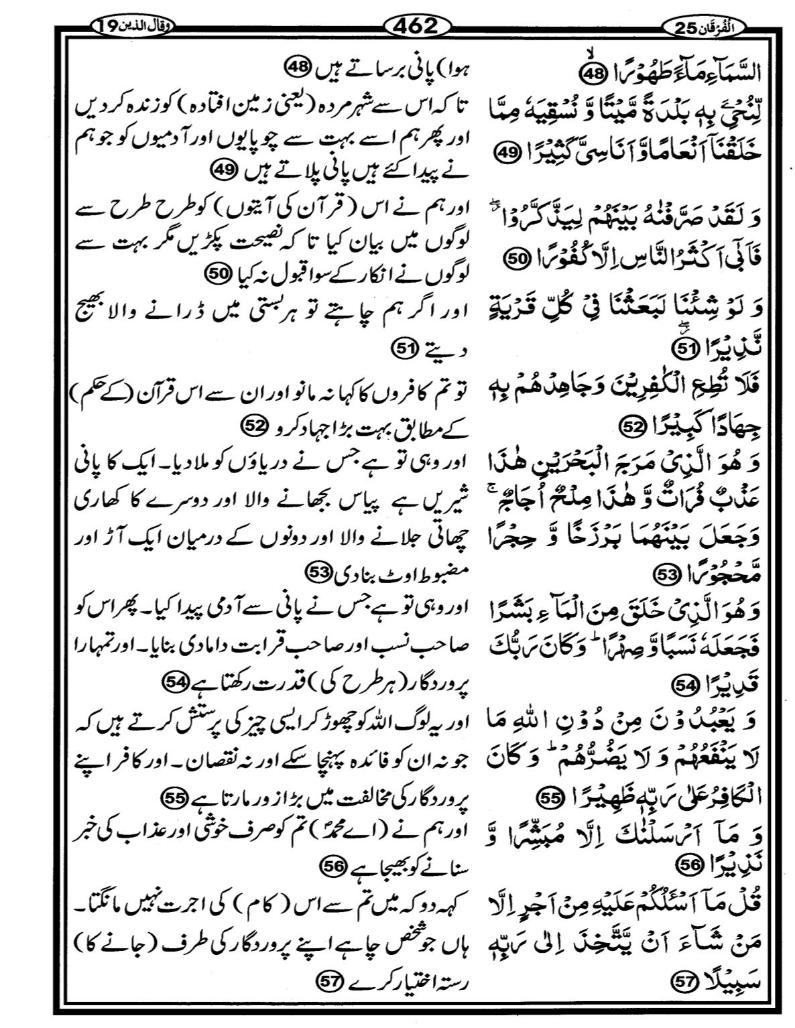 الْفُرْقَان 25
462
وقال الذین 19
السَّمَآءِ مَآءً طَهُوْرًا ۙ 48
لِّنُحْیِۦَ بِهٖ بَلْدَةً مَّیْتًا وَّ نُسْقِیَهٗ مِمَّا
خَلَقْنَاۤ اَنْعَامًا وَّ اَنَاسِیَّ كَثِیْرًا 49
وَ لَقَدْ صَرَّفْنٰهُ بَیْنَهُمْ لِیَذَّكَّرُوْا ۖ
فَاَبٰۤی اَكْثَرُ النَّاسِ اِلَّا كُفُوْرًا 50
وَ لَوْ شِئْنَا لَبَعَثْنَا فِیْ كُلِّ قَرْیَةٍ
نَّذِیْرًا ۖ 51
فَلَا تُطِعِ الْكٰفِرِیْنَ وَ جَاهِدْهُمْ بِهٖ
جِهَادًا كَبِیْرًا 52
وَ هُوَ الَّذِیْ مَرَجَ الْبَحْرَیْنِ هٰذَا
عَذْبٌ فُرَاتٌ وَّ هٰذَا مِلْحٌ اُجَاجٌ ۚ
وَجَعَلَ بَیْنَهُمَا بَرْزَخًا وَّ حِجْرًا
مَّحْجُوْرًا 53
وَهُوَ الَّذِیْ خَلَقَ مِنَ الْمَآءِ بَشَرًا
فَجَعَلَهٗ نَسَبًا وَّ صِهْرًا ؕ وَ كَانَ رَبُّكَ
قَدِیْرًا 54
وَ یَعْبُدُوْنَ مِنْ دُوْنِ اللّٰهِ مَا
لَا یَنْفَعُهُمْ وَ لَا یَضُرُّهُمْ ؕ وَ كَانَ
الْكَافِرُ عَلٰی رَبِّهٖ ظَهِیْرًا 55
وَ مَاۤ اَرْسَلْنٰكَ اِلَّا مُبَشِّرًا وَّ
نَذِیْرًا 56
قُلْ مَاۤ اَسْئَلُكُمْ عَلَیْهِ مِنْ اَجْرٍ اِلَّا
مَنْ شَآءَ اَنْ یَّتَّخِذَ اِلٰی رَبِّهٖ
سَبِیْلًا 57
ہوا) پانی برساتے ہیں 48
تاکہ اس سے شہر مردہ (یعنی زمین افتادہ) کو زندہ کردیں
اور پھر ہم اسے بہت سے چوپایوں اور آدمیوں کو جو ہم
نے پیدا کئے ہیں پانی پلاتے ہیں 49
اور ہم نے اس (قرآن کی آیتوں) کو طرح طرح سے
لوگوں میں بیان کیا تاکہ نصیحت پکڑیں مگر بہت سے
لوگوں نے انکار کے سوا قبول نہ کیا 50
اور اگر ہم چاہتے تو ہر بستی میں ڈرانے والا بھیج
دیتے 51
تو تم کافروں کا کہا نہ مانو اور ان سے اس قرآن (کے حکم)
کے مطابق بہت بڑا جہاد کرو 52
اور وہی تو ہے جس نے دریاؤں کو ملا دیا۔ ایک کا پانی
شیریں ہے پیاس بجھانے والا اور دوسرے کا کھاری
چھاتی جلانے والا اور دونوں کے درمیان ایک آڑ اور
مضبوط اوٹ بنا دی 53
اور وہی تو ہے جس نے پانی سے آدمی پیدا کیا۔ پھر اس کو
صاحب نسب اور صاحب قرابت دامادی بنایا۔ اور تمہارا
پروردگار (ہر طرح کی) قدرت رکھتا ہے 54
اور یہ لوگ اللہ کو چھوڑ کر ایسی چیز کی پرستش کرتے ہیں کہ
جو نہ ان کو فائدہ پہنچا سکے اور نہ نقصان۔ اور کافر اپنے
پروردگار کی مخالفت میں بڑا زور مارتا ہے 55
اور ہم نے (اے محمدؐ) تم کو صرف خوشی اور عذاب کی خبر
سنانے کو بھیجا ہے 56
کہہ دو کہ میں تم سے اس (کام) کی اجرت نہیں مانگتا۔
ہاں جو شخص چاہے اپنے پروردگار کی طرف (جانے کا)
رستہ اختیار کرے 57